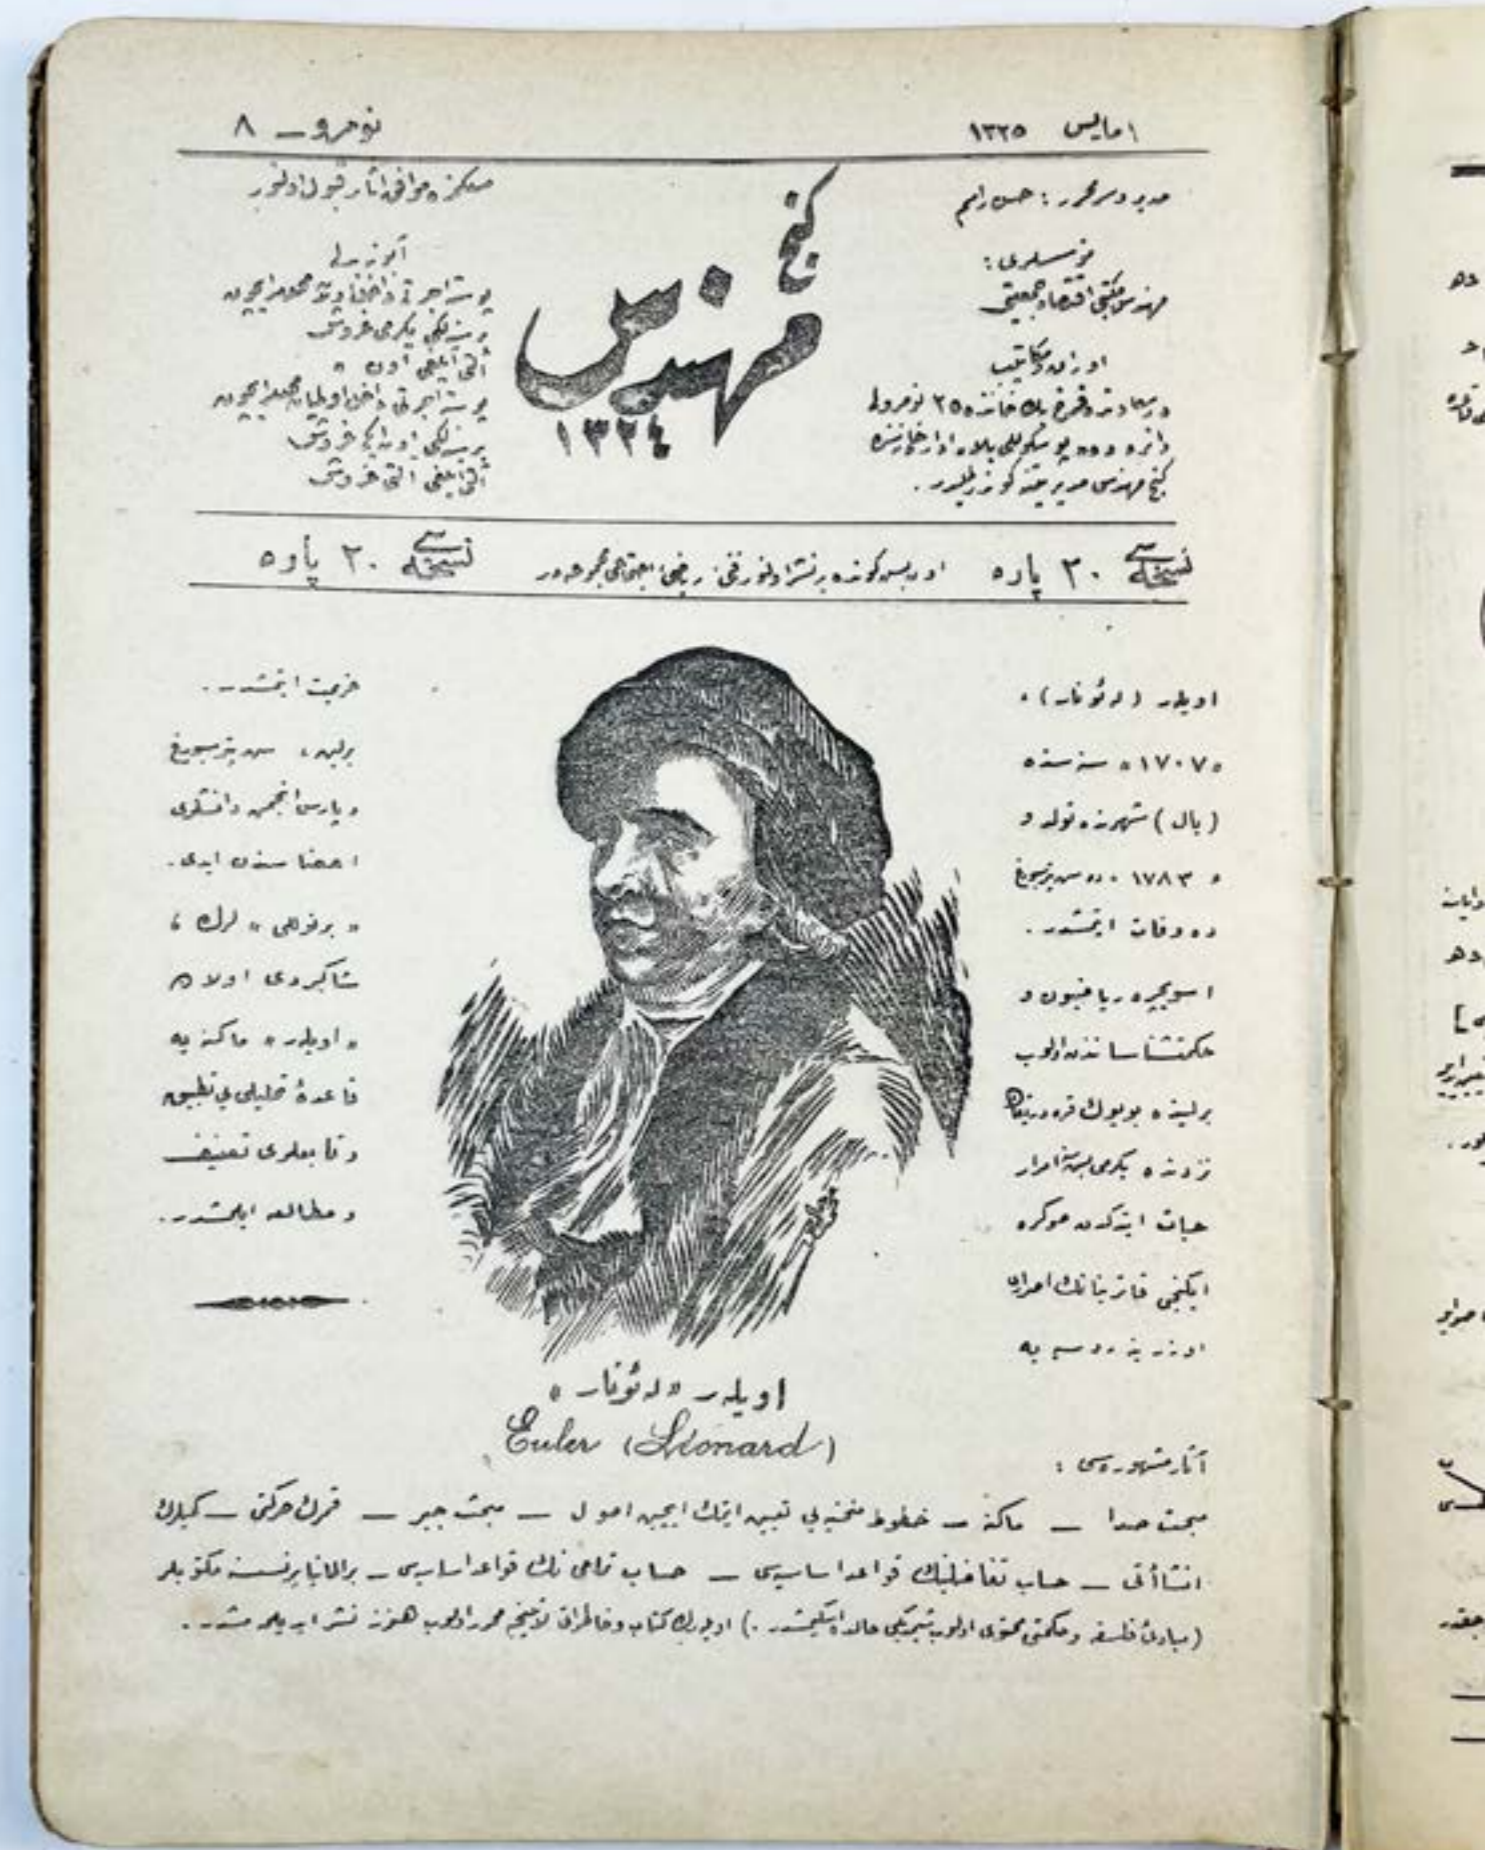 ١ مايس ١٣٢٥
نومرو ـ ٨
مدير و سر محرر : حسن راسم
مؤسسلری :
مهندس مكتبی اقتصاد جمعيتی
اوراق و مكاتيب
كنج مهندس مديريتنه كوندريلير .
كنج
مهندس
١٣٢٤
مسلكمزه موافق آثار قبول اولنور
آبونه بدلی
پوسته اجرتی داخل اولديغی محللر ايچون
بر سنه لكی يكرمی غروش
آلتی آيلغی اون »
پوسته اجرتی داخل اولميان محللر ايچون
بر سنه لكی اون ايكی غروش
آلتی آيلغی آلتی غروش
نسخه سی ٣٠ پاره
اون بش كونده بر نشر اولنور فنی ، رياضی ، اجتماعی مجموعه در
نسخه سی ٢٠ پاره
اويلر ( له ئونار ) ،
« ١٧٠٧ » سنه سنده
( بال ) شهرنده تولد و
« ١٧٨٣ » ده سن پترسبورغ
ده وفات ايتمشدر .
اسويچره رياضيون و
حكمتشناسانندن اولوب
برلينده بويوك فره دريقك
نزدنده يكرمی بش سنه امرار
حيات ايتدكدن صوكره
ايكنجی قاترينانك اصراری
اوزرينه روسيه يه
عزيمت ايتمشدر .
برلين ، سن پترسبورغ
و پارس انجمن دانشلری
اعضاسندن ايدی .
« برنوللی » لرك ،
شاكردی اولان
« اويلر » ماكنه يه
قاعدهٔ تحليلی يی تطبيق
و تابعلری تصنيف
و مطالعه ايلمشدر .
اويلر « له ئونار »
Euler (Léonard)
آثار مشهوره سی :
مبحث صدا ـ ماكنه ـ خطوط منحنيه يی تعيين ايتمك ايچون اصول ـ مبحث جبر ـ قمرك حركتی ـ كميلرك
انشاآتی ـ حساب تفاضلينك قواعد اساسيه سی ـ حساب تمامی نك قواعد اساسيه سی ـ بر آلمانيا پرنسسنه مكتوبلر
( مبادئ فلسفه و حكمتی محتوی اولوب ) اويلرك كتاب و خاطراتی لاتينجه محرر اولوب هنوز نشر ايديلمه مشدر .